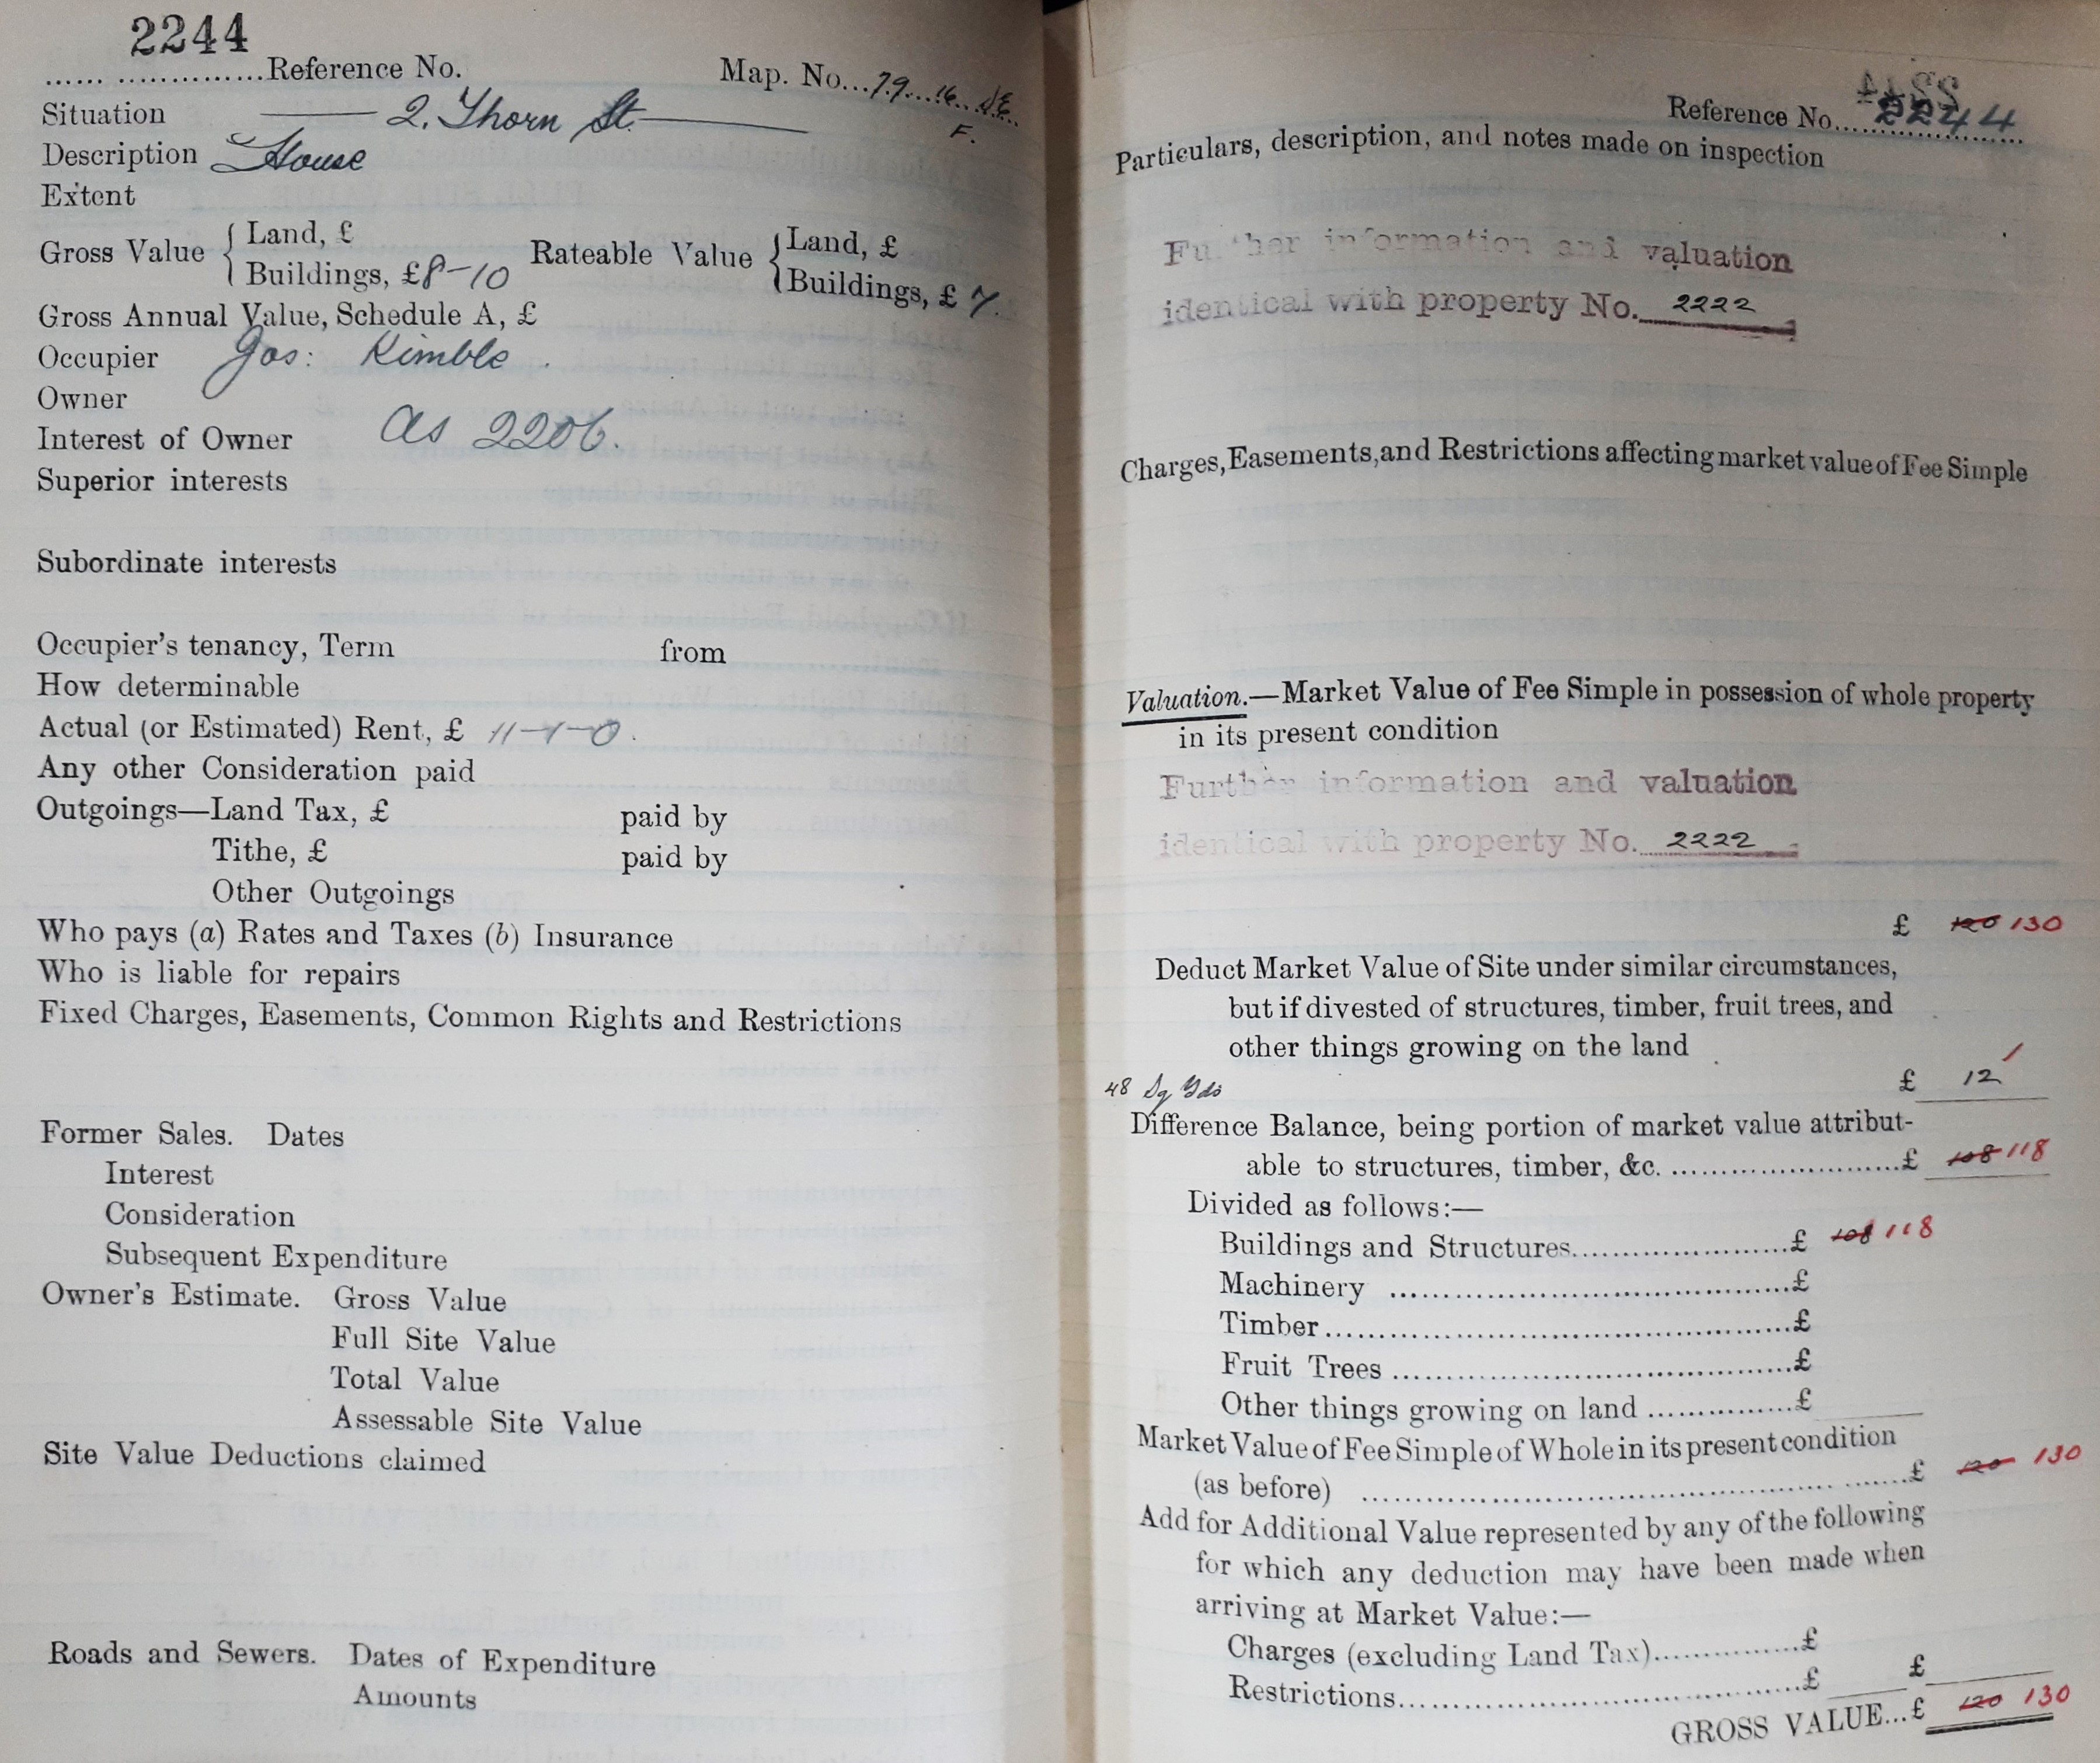 2244
...... ..............Reference No. Map. No...79...16...S.E.
F.
Situation 2, Thorn St.
Description House
Extent
Gross Value { Land, £ Rateable Value { Land, £
Buildings, £8-10 Buildings, £ 7.
Gross Annual Value, Schedule A, £
Occupier Jas: Kimble.
Owner
Interest of Owner as 2206.
Superior interests
Subordinate interests
Occupier's tenancy, Term from
How determinable
Actual (or Estimated) Rent, £ 11-1-0.
Any other Consideration paid
Outgoings—Land Tax, £ paid by
Tithe, £ paid by
Other Outgoings
Who pays (a) Rates and Taxes (b) Insurance
Who is liable for repairs
Fixed Charges, Easements, Common Rights and Restrictions
Former Sales. Dates
Interest
Consideration
Subsequent Expenditure
Owner's Estimate. Gross Value
Full Site Value
Total Value
Assessable Site Value
Site Value Deductions claimed
Roads and Sewers. Dates of Expenditure
Amounts
Reference No. 2244
Particulars, description, and notes made on inspection
Further information and valuation
identical with property No. 2222
Charges, Easements, and Restrictions affecting market value of Fee Simple
Valuation.—Market Value of Fee Simple in possession of whole property
in its present condition
Further information and valuation
identical with property No. 2222
£ 120 130
Deduct Market Value of Site under similar circumstances,
but if divested of structures, timber, fruit trees, and
other things growing on the land
48 Sq Yds £ 12
Difference Balance, being portion of market value attribut-
able to structures, timber, &c. ........................£ 108 118
Divided as follows:—
Buildings and Structures.......................£ 108 118
Machinery ...........................................£
Timber..................................................£
Fruit Trees ...........................................£
Other things growing on land ...............£
Market Value of Fee Simple of Whole in its present condition
(as before) ..................................................£ 120 130
Add for Additional Value represented by any of the following
for which any deduction may have been made when
arriving at Market Value:—
Charges (excluding Land Tax)..............£
Restrictions..........................................£ £
GROSS VALUE...£ 120 130